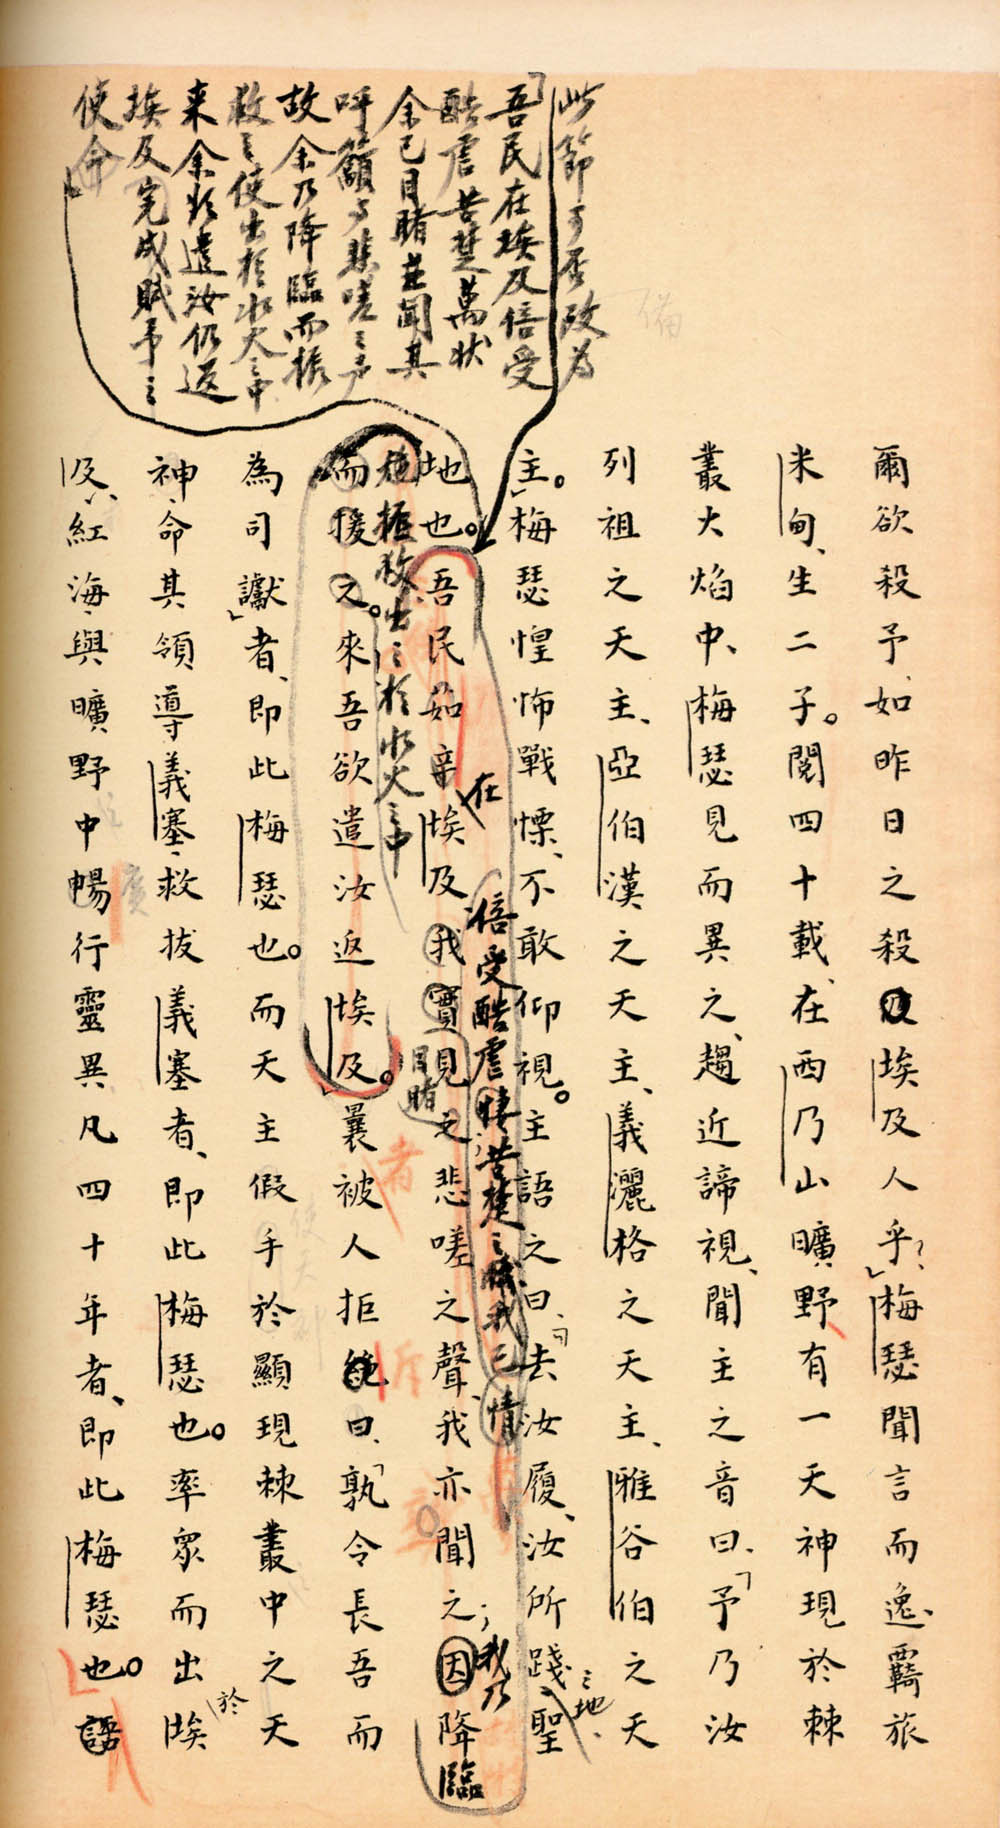 此節可否改為
「吾民在埃及倍受
酷虐苦楚萬狀
余已目睹並聞其
呼籲與悲嗟之聲
故余乃降臨而振
救之使出於水火之中
來余將遣汝仍返
埃及完成賦予之
使命
備
爾欲殺予、如昨日之殺埃及人乎?」梅瑟聞言而逸、羇旅
米甸、生二子。閱四十載、在西乃山曠野有一天神現於棘
叢火焰中、梅瑟見而異之、趨近諦視、聞主之音曰、「予乃汝
列祖之天主、亞伯漢之天主、義灑格之天主、雅谷伯之天
主。」梅瑟惶怖戰慄、不敢仰視。主語之曰、「去汝履、汝所踐、聖
之地、
在
倍受酷虐悽苦楚之我已情
；我乃
地也。吾民茹辛埃及我實見之悲嗟之聲、我亦聞之因降臨
目睹
拯救出之於水火之中
而援之。來吾欲遣汝返埃及。」曩被人拒絕曰、「孰令長吾而
者
斥
為司讞」者、即此梅瑟也。而天主假手於顯現棘叢中之天
使天神
神、命其領導義塞、救拔義塞者、即此梅瑟也。率眾而出埃
於
廣
及、紅海、與曠野中暢行靈異凡四十年者、即此梅瑟也。語